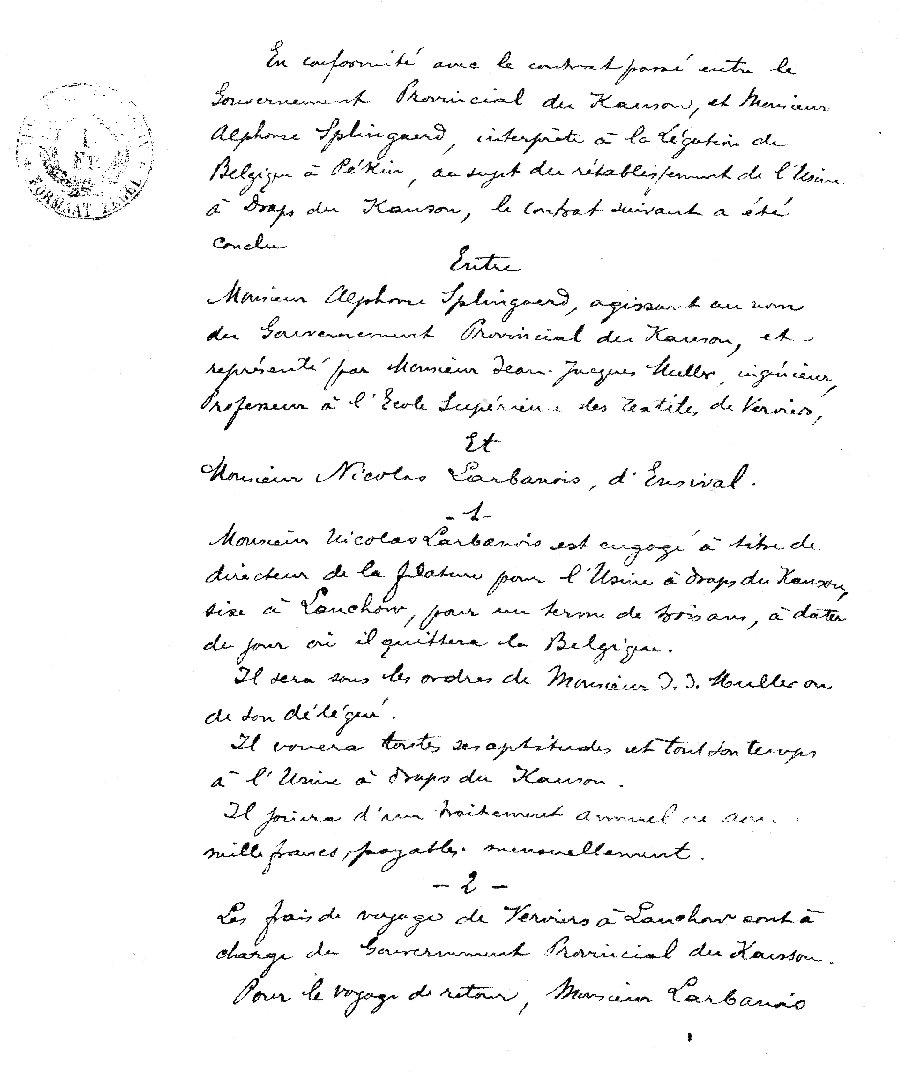 1
FR
En conformité avec le contrat passé entre le
Gouvernement Provincial du Kanson, et Monsieur
Alphonse Splingaerd, interprète à la Légation de
Belgique à Pékin, au sujet du rétablissement de l'Usine
à Draps du Kanson, le contrat suivant a été
conclu
Entre
Monsieur Alphonse Splingaerd, agissant au nom
du Gouvernement Provincial du Kanson, et
représenté par Monsieur Jean-Jacques Muller, ingénieur,
Professeur à l'Ecole Supérieure des Textiles de Verviers,
Et
Monsieur Nicolas Larbanois, d'Ensival.
- 1 -
Monsieur Nicolas Larbanois est engagé à titre de
directeur de la filature pour l'Usine à draps du Kanson,
sise à Lanchow, pour un terme de trois ans, à dater
du jour où il quittera la Belgique.
Il sera sous les ordres de Monsieur J. J. Muller ou
de son délégué.
Il vouera toutes ses aptitudes et tout son temps
à l'Usine à draps du Kanson.
Il jouira d'un traitement annuel de
mille francs, payables mensuellement.
- 2 -
Les frais de voyage de Verviers à Lanchow sont à
charge du Gouvernement Provincial du Kansou.
Pour le voyage de retour, Monsieur Larbanois